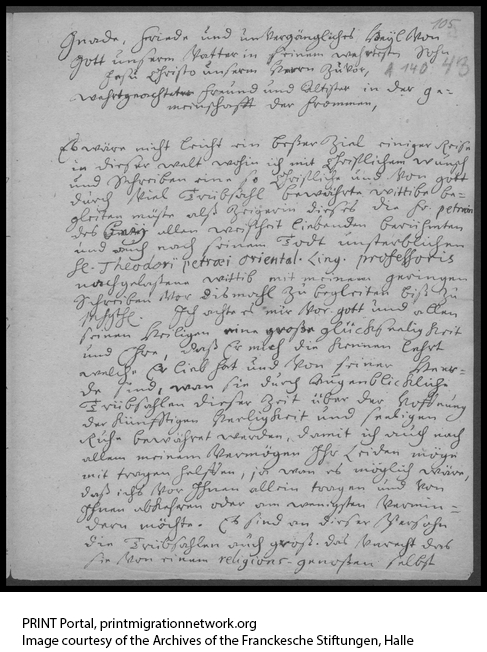 105
Gnade, Friede und unvergängliches Heÿl Von
Gott unserm Vatter in seinem wehrtesten Sohn
Jesu Christo unserm Herrn zuvor, A 140 43
wehrtgeachteter Freund und Eltister in der ge-
meinschafft der Frommen,
Es wäre nicht leicht ein beßer Ziel einiger Reise
in dieser welt wohin ich mit Christlichem wunsch
und Schreiben eine so Christliche und Von gott
durch Viel Trübsahl bewährte wittibe be-
gleiten müste alß Zeigerin dieses die Fr. petræin
des allen weißheit liebenden berühmten
und auch nach seinem Todt unsterblichen
H. Theodori petræi oriental. Ling. professoris
nachgelassene wittib mit meinem geringen
Schreiben Vor dismahl zu begleiten biß zu
Ich achte es mir Vor gott und allen
seinen Heiligen eine große glückseeligkeit
und Ehre, daß Er mich die kennen lehrt
welche Er lieb hat und Von seiner Heer-
de sind, wan sie durch Augenblickliche
Trübsahlen dieser Zeit über der Hoffnung
der künfftigen Herligkeit und seeligen
Ruhe bewähret werden, damit ich auch nach
allem meinem Vermögen Ihr Leiden möge
mit tragen helffen, ja wan es möglich wäre,
daß ichs Vor Ihnen allein tragen und Von
Ihnen abkehren oder am wenigsten Vermin-
dern möchte. Es sind an dieser Persohn
die Trübsahlen auch groß. das
sie Von einem religions-genoßen selbst
PRINT Portal, printmigrationnetwork.org
Image courtesy of the Archives of the Franckesche Stiftungen, Halle